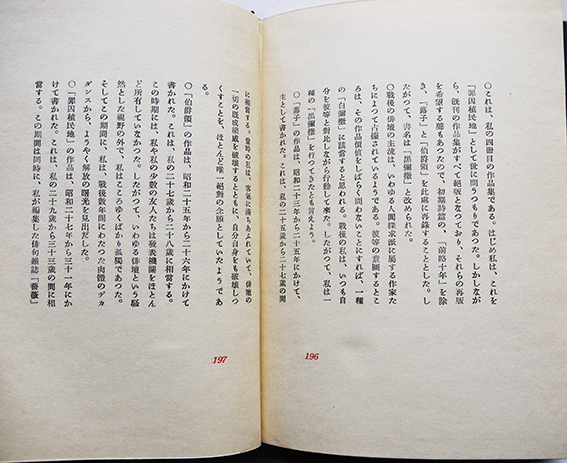 〇これは、私の四冊目の作品集である。はじめ私は、これを
『罪囚植民地』として世に問うつもりであつた。しかしなが
ら、既刊の作品集がすべて絶版となつており、それらの再版
を希望する聲もあつたので、初期詩篇の、「前略十年」を除
き、『蕗子』と『伯爵領』を此處に再錄することとした。し
たがつて、書名は『黒彌撒』と改められた。
〇戰後の俳壇の主流は、いわゆる人間探求派に屬する作家た
ちによつて占據されているようである。彼等の意圖するとこ
ろは、その作品價値をしばらく問わないことにすれば、一種
の「白彌撒」に該當すると思われる。戰後の私は、いつも自
分を彼等と對比しながら行動して來た。したがつて、私は一
種の「黒彌撒」を行つてきたとも言えよう。
〇『蕗子』の作品は、昭和二十三年から二十五年にかけて、
主として書かれた。これは、私の二十五歳から二十七歳の間
196
に相當する。當時の私は、客氣に滿ちあふれていて、俳壇の
一切の既成權威を破壞するとともに、自分自身をも破壞しつ
くすことを、ほとんど唯一絕對の念願としていたようであ
る。
〇『伯爵領』の作品は、昭和二十五年から二十六年にかけて
書かれた。これは、私の二十七歳から二十八歳に相當する。
この時期には、私や私の少數の友人たちは發表機關をほとん
ど所有していなかつた。したがつて、いわゆる俳壇という騷
然とした視野の外で、私はこころゆくばかり孤獨であつた。
そしてこの期間に、私は、戰後數年間にわたつた肉體のデカ
ダンスから、ようやく解放の曙光を見出だした。
〇『罪囚植民地』の作品は、昭和二十七年から三十一年にか
けて書かれた。これは、私の二十九歳から三十三歳の間に相
當する。この期間は同時に、私が編集した俳句雜誌「薔薇」
197